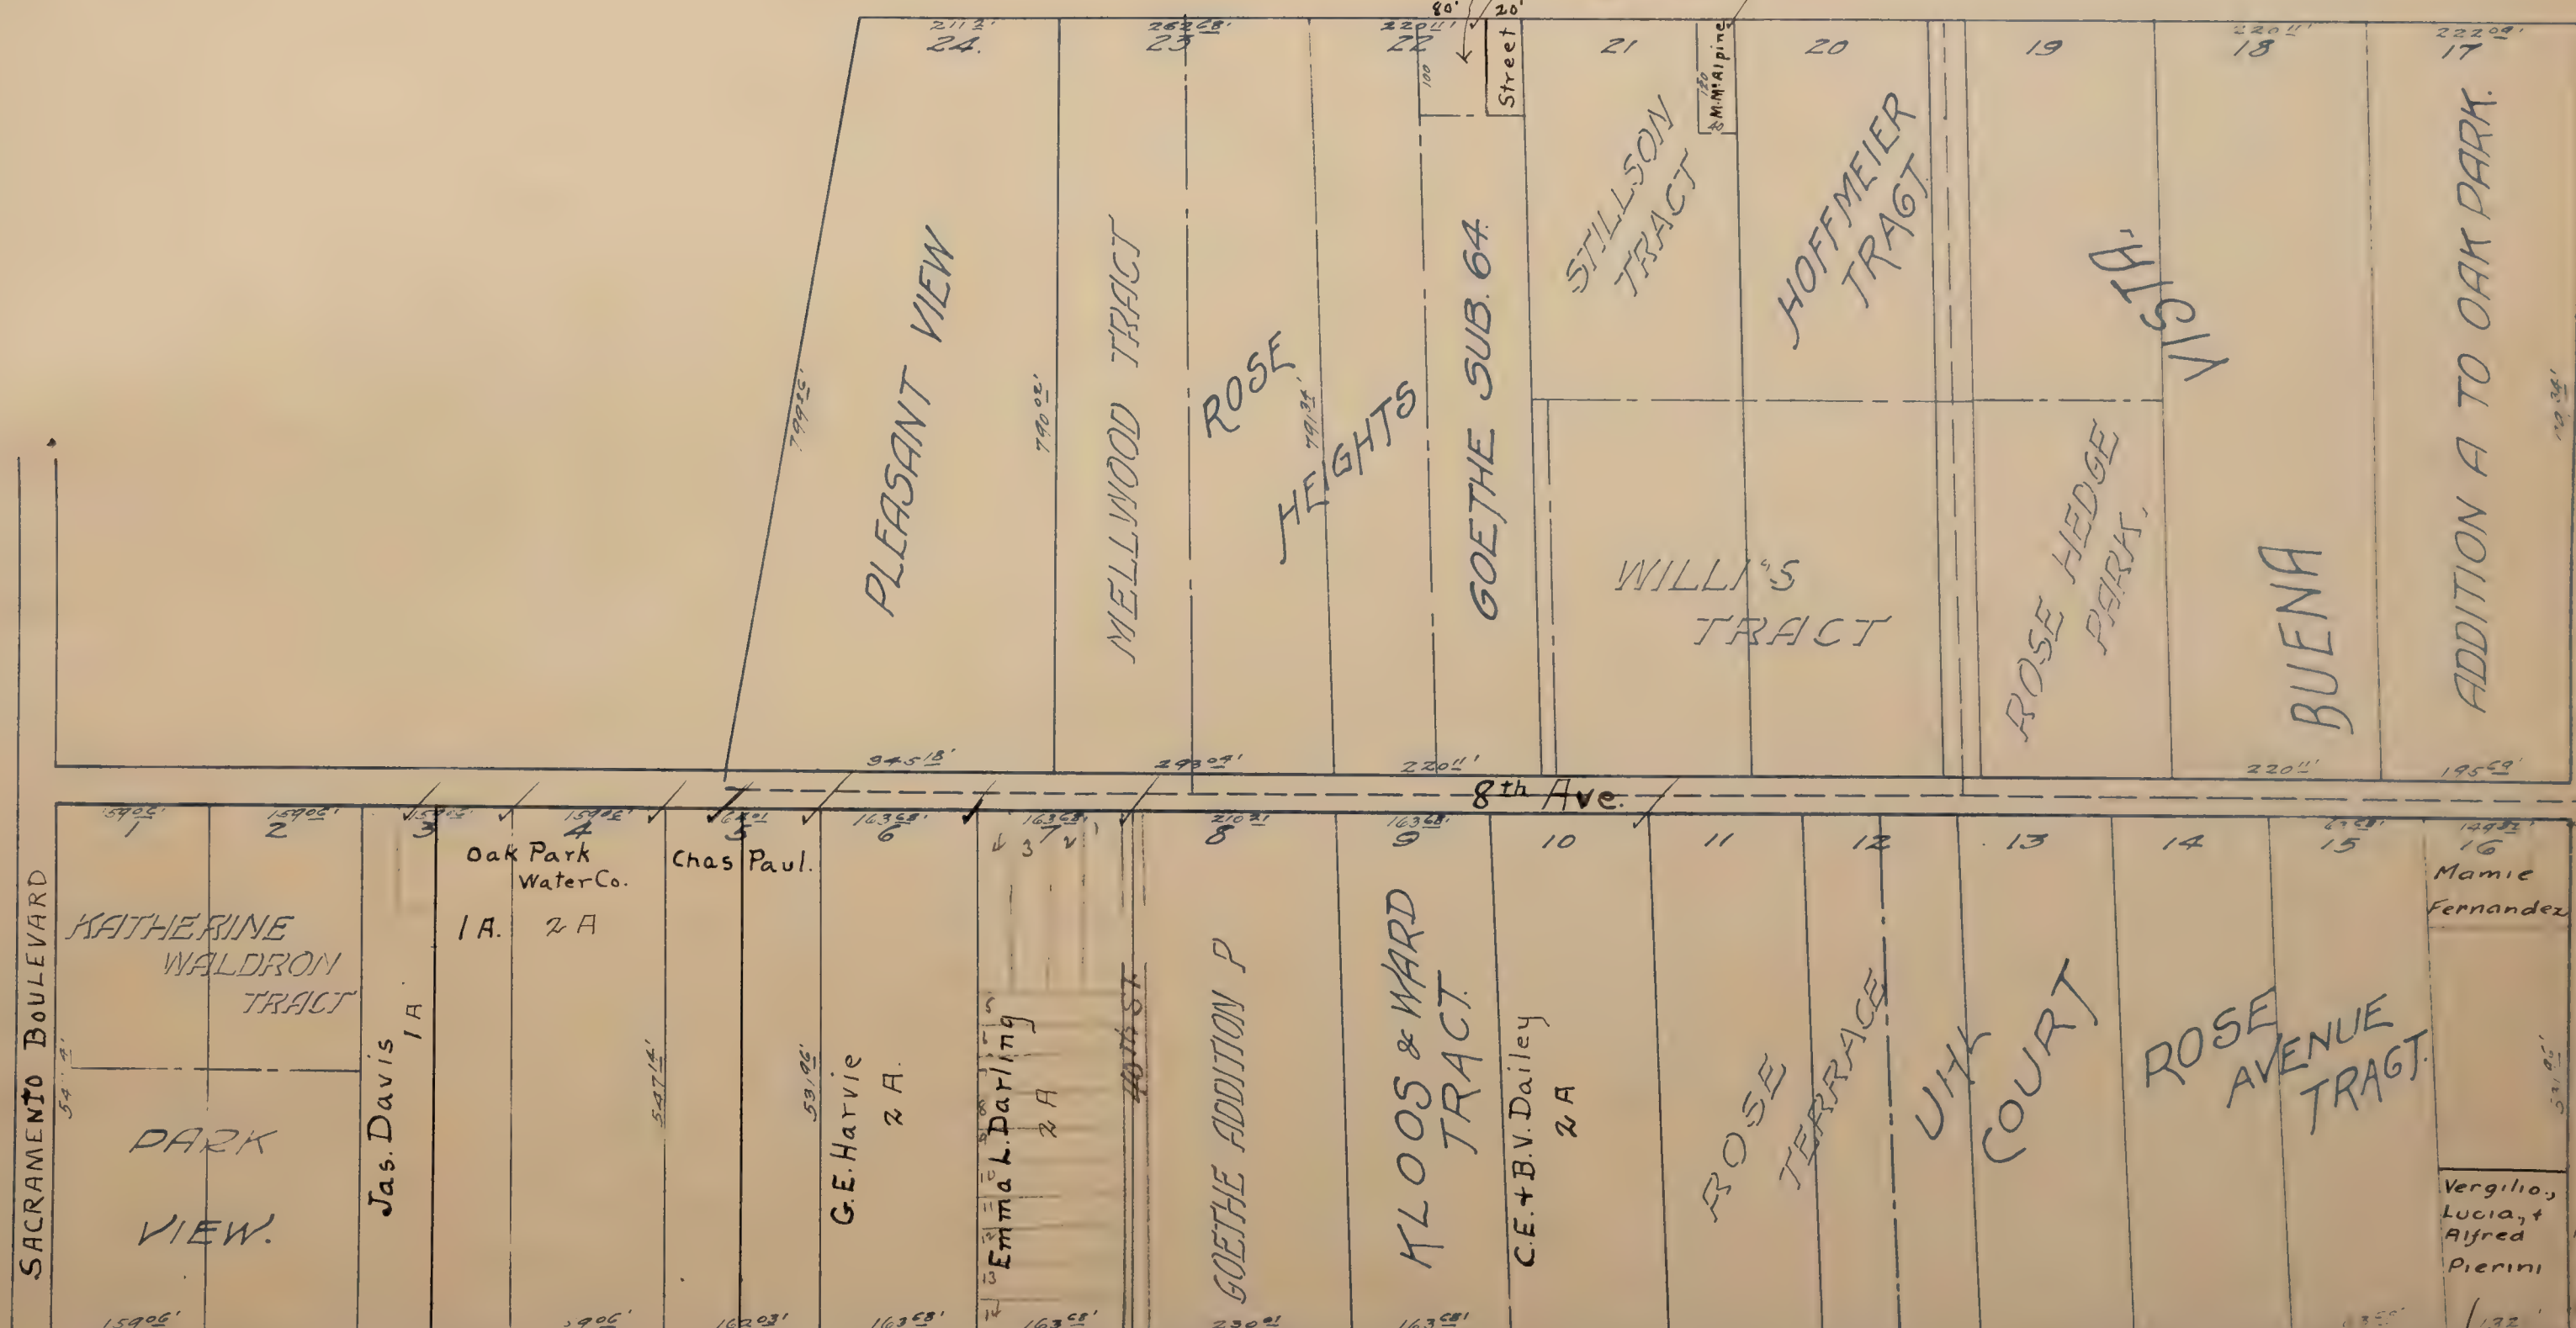 80' 20'
211 2'
24.
262 68'
23
220 11'
22
100
Street
21
120
M.McAlpine
20
19
220 11'
18
222 09'
17
PLEASANT VIEW
790 02'
MELLWOOD TRACT
ROSE
HEIGHTS
791 34'
GOETHE SUB. 64.
STILLSON
TRACT
HOFFMEIER
TRACT
WILLI'S
TRACT
ROSE HEDGE
PARK.
BUENA
VISTA.
ADDITION A TO OAK PARK.
345 18'
293 09'
220 11'
220 11'
195 69'
8th Ave.
SACRAMENTO BOULEVARD
159 06'
1
159 06'
2
159 06'
3
159 06'
4
5
163 68'
6
163 68'
7
210 21
8
163 68'
9
10
11
12
13
14
15
149 82'
16
KATHERINE
WALDRON
TRACT
PARK
VIEW.
Jas. Davis
1 A
Oak Park
Water Co.
1 A. 2 A
547 14'
Chas Paul.
531 96'
G.E. Harvie
2 A.
3
Emma L. Darling
2 A
13
40th ST.
GOETHE ADDITION P
KLOOS & WARD
TRACT.
C.E. + B.V. Dailey
2 A
ROSE
TERRACE
UHL
COURT
ROSE
AVENUE
TRACT.
Mamie
Fernandez
Vergilio,
Lucia, +
Alfred
Pierini
159 06'
163 68'
163 68'
230 01
163 68'
132